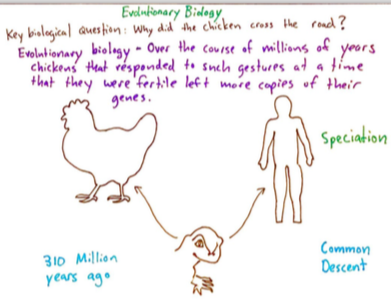 Evolutionary Biology
Key biological question: Why did the chicken cross the road?
Evolutionary biology - Over the course of millions of years
chickens that responded to such gestures at a time
that they were fertile left more copies of their
genes.
Speciation
310 Million
years ago
Common
Descent